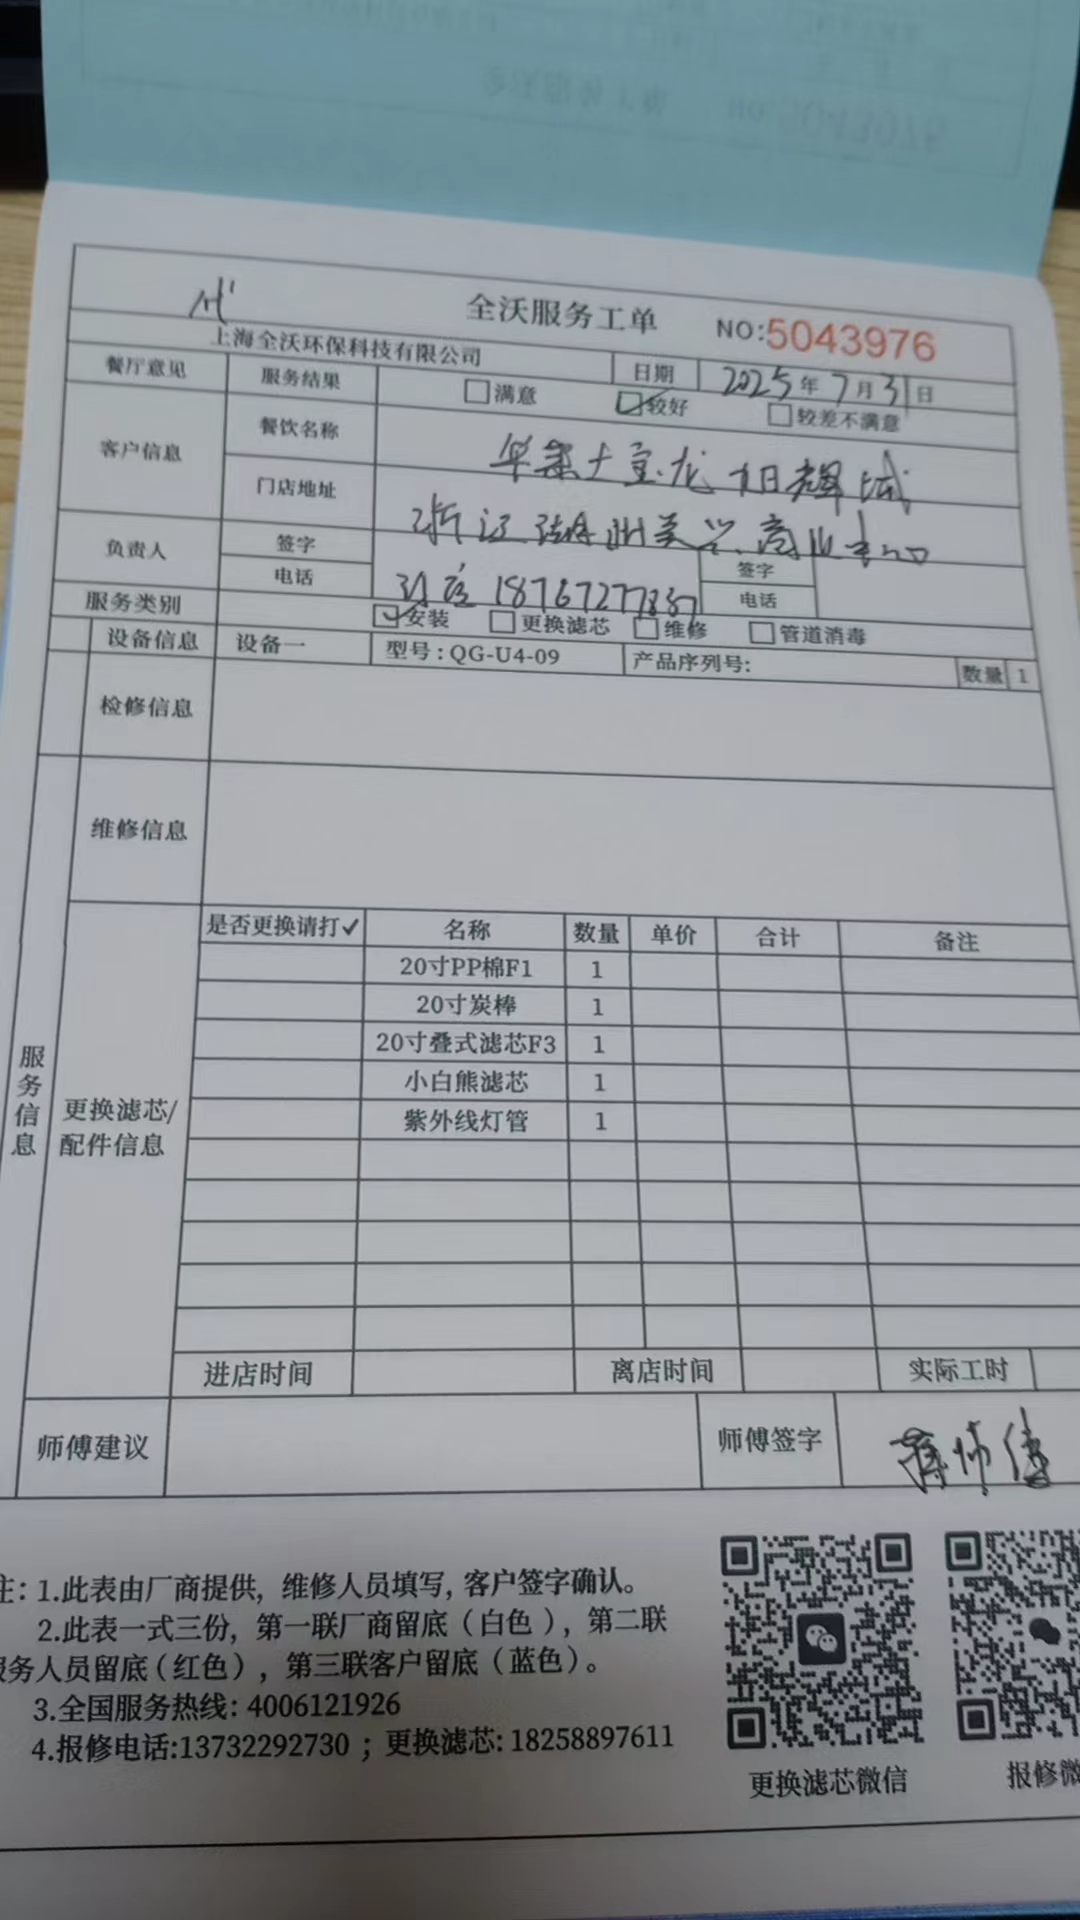 全沃服务工单 NO:5043976
上海全沃环保科技有限公司 日期 2025年7月31日
餐厅意见 服务结果 满意 较好 较差不满意
客户信息 餐饮名称 宝龙旭辉城
门店地址 浙江湖州吴兴商业中心
负责人 签字 签字
电话 18767277837 电话
服务类别 安装 更换滤芯 维修 管道消毒
设备信息 设备一 型号:QG-U4-09 产品序列号: 数量 1
检修信息
维修信息
服务信息
更换滤芯/配件信息
是否更换请打✓ 名称 数量 单价 合计 备注
20寸PP棉F1 1
20寸炭棒 1
20寸叠式滤芯F3 1
小白熊滤芯 1
紫外线灯管 1
进店时间 离店时间 实际工时
师傅建议 师傅签字 蒋师傅
注: 1.此表由厂商提供, 维修人员填写, 客户签字确认。
2.此表一式三份, 第一联厂商留底(白色), 第二联
服务人员留底(红色), 第三联客户留底(蓝色)。
3.全国服务热线: 4006121926
4.报修电话:13732292730 ; 更换滤芯: 18258897611
更换滤芯微信 报修微